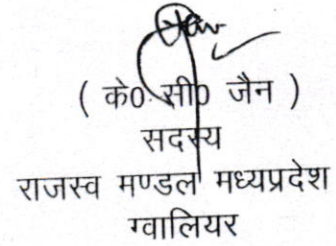 ( के0 सी0 जैन )
सदस्य
राजस्व मण्डल मध्यप्रदेश
ग्वालियर